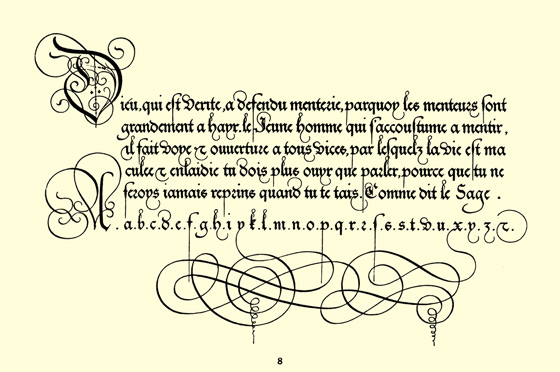 Dieu, qui est Verite, a defendu menterie, parquoy les menteurs sont
grandement a hayr. le Jeune homme qui s'accoustume a mentir,
il fait voye & ouverture a tous vices, par lesquelz la vie est ma
culee & enlaidie tu dois plus ouyr que parler, pource que tu ne
seroys iamais reprins quand tu te tais. Comme dit le Sage .
A . a.b.c.d.e.f.g.h.i.y.k.l.m.n.o.p.q.r.r.s.s.s.t.v.u.x.y.z.&.
8